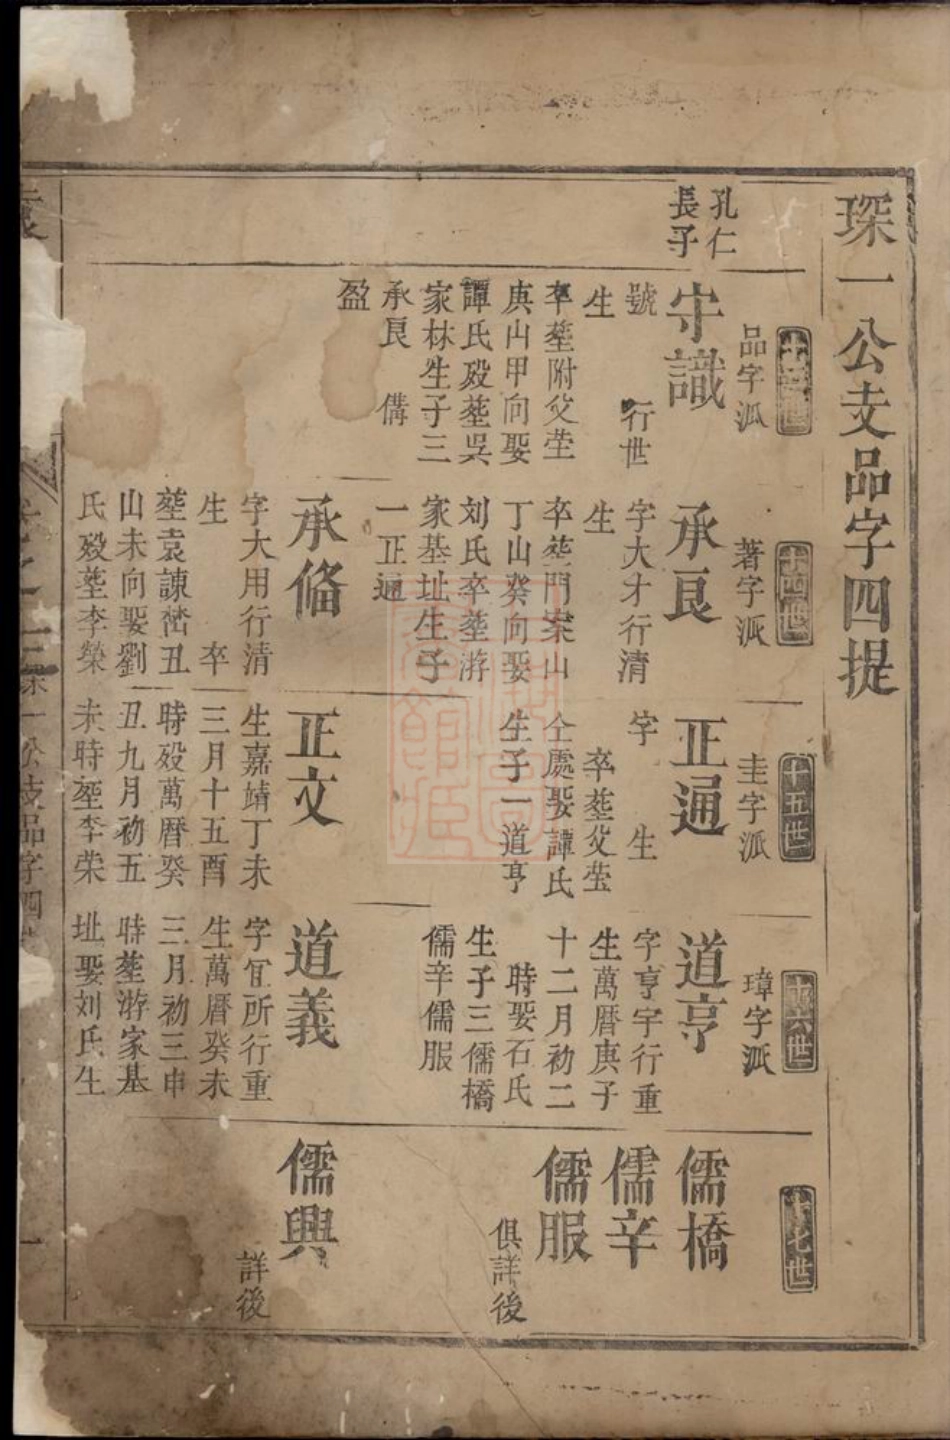 琛一公支品字四提
十三世
品字派
孔仁
長子
守識
號 行世
生
卒塟附父塋
庚山甲向娶
譚氏殁塟吳
家林生子三
承良 備
盈
十四世
著字派
承良
字大才行清
生
卒塟門案山
丁山癸向娶
刘氏卒塟游
家基址生子
一正通
承俻
字大用行清
生 卒
塟袁諌嵆丑
山未向娶劉
氏殁塟李榮
十五世
圭字派
正通
字 生
卒塟父塋
仝處娶譚氏
生子一道亨
正文
生嘉靖丁未
三月十五酉
時殁萬曆癸
丑九月初五
未時塟李荣
十六世
璋字派
道亨
字亨宇行重
生萬曆庚子
十二月初二
時娶石氏
生子三儒橋
儒辛儒服
道義
字宜所行重
生萬曆癸未
三月初三申
時塟游家基
址娶刘氏生
十七世
儒橋
儒辛
儒服
俱詳後
儒興
詳後
一公支品字四
一